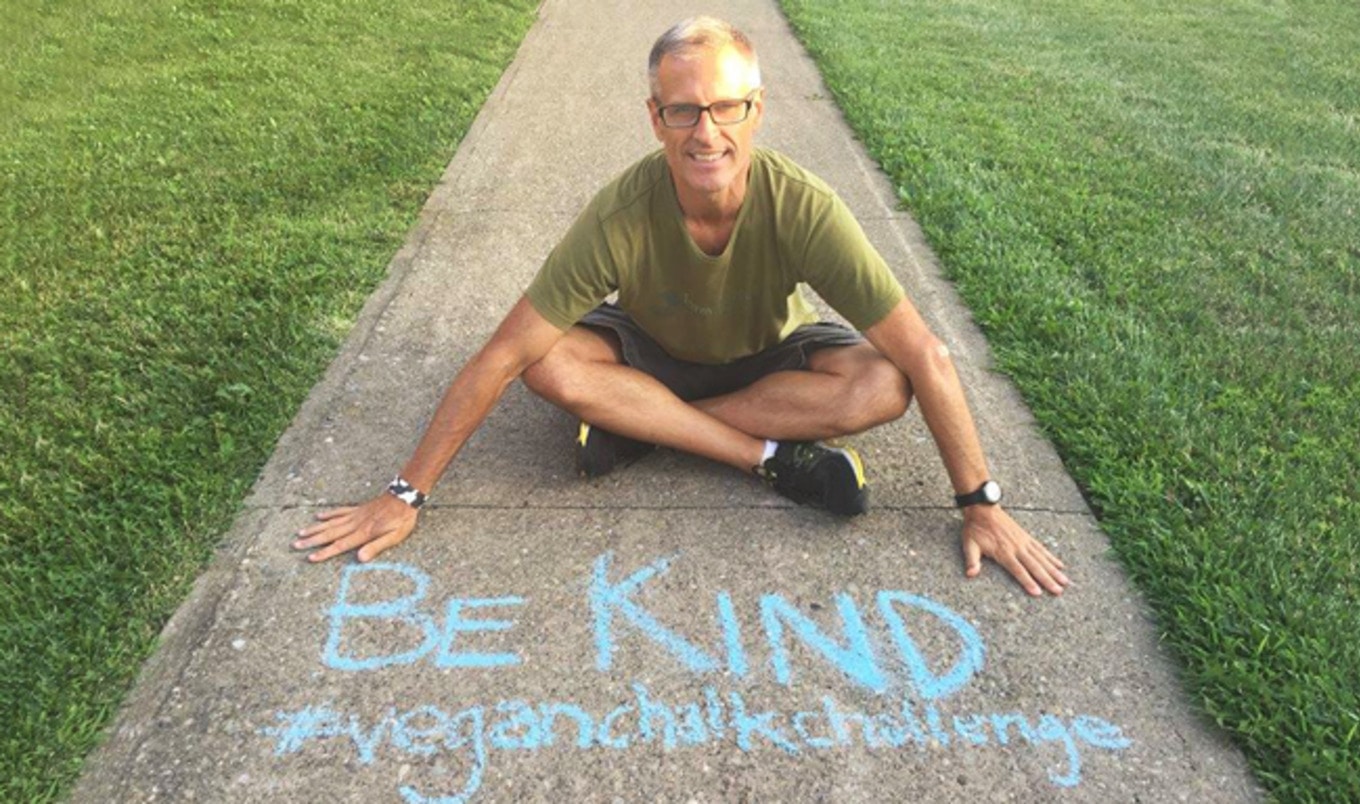 BE KIND
#veganchalkchallenge